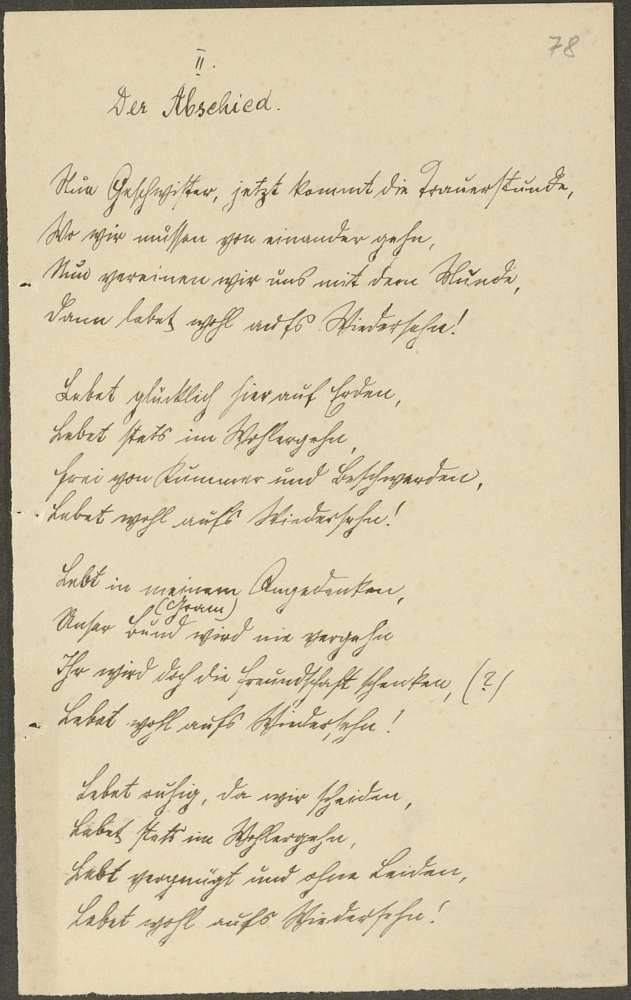 78
II.
Der Abschied.
Nun Geschwister, jetzt kommt die Trauerstunde,
Wo wir müssen von einander gehn,
Nun vereinen wir uns mit dem Munde,
Dann lebet wohl aufs Wiedersehn!
Lebet glücklich hier auf Erden,
Lebet stets im Wohlergehn,
Frei von Kummer und Beschwerden,
Lebet wohl aufs Wiedersehn!
Lebt in meinem Angedenken,
(Gram)
Unser Bund wird nie vergehn
Ihr wird doch die Freundschaft schenken, (?)
Lebet wohl aufs Wiedersehn!
Lebet ruhig, da wir scheiden,
Lebet stets im Wohlergehn,
Lebt vergnügt und ohne Leiden,
Lebet wohl aufs Wiedersehn!